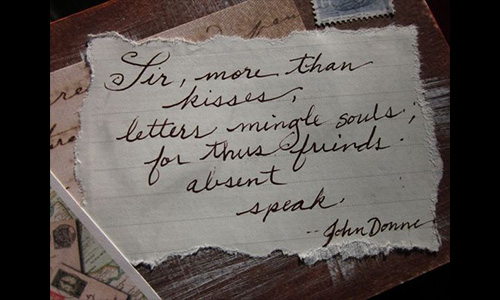 Sir, more than
kisses,
letters mingle souls;
for thus friends
absent
speak.
-- John Donne